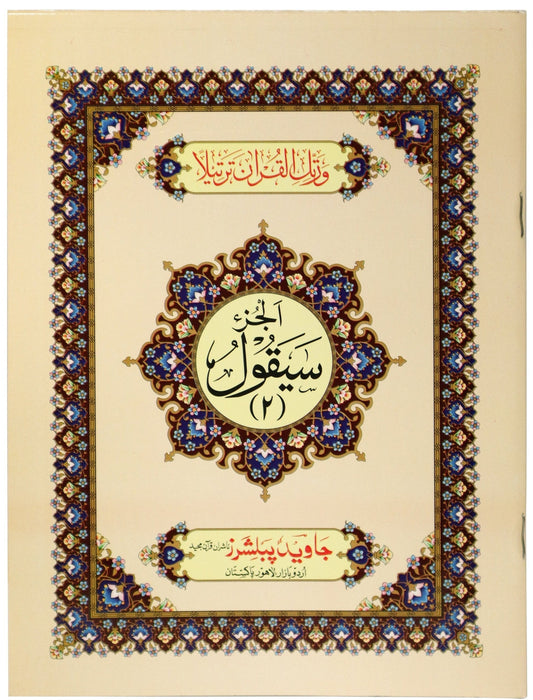 وَرَتِّلِ الْقُرْاٰنَ تَرْتِيْلًا
اَلْجُزْءُ
سَيَقُوْلُ
(٢)
جاوید پبلشرز ناشران قرآن مجید
اُردو بازار لاھور پاکستان